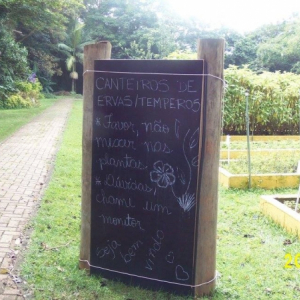 CANTEIROS DE
ERVAS/TEMPEROS
* Favor, não
mexer nas
plantas.
* Dúvidas,
chame um
monitor
Seja bem
vindo